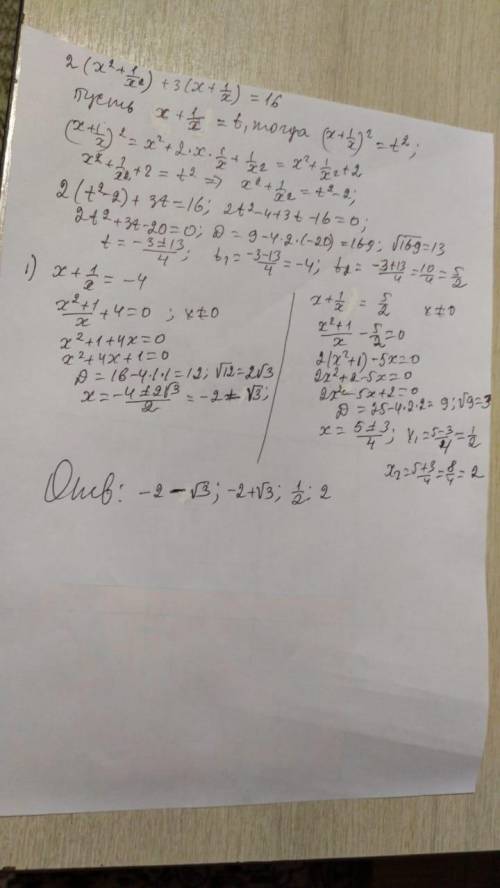 2(x²+1/x²)+3(x+1/x)=16
пусть x+1/x=t, тогда (x+1/x)²=t²;
(x+1/x)²=x²+2·x·1/x+1/x²=x²+1/x²+2
x²+1/x²+2=t² => x²+1/x²=t²-2;
2(t²-2)+3t=16; 2t²-4+3t-16=0;
2t²+3t-20=0; D=9-4·2·(-20)=169; √169=13
t=-3±13/4; t₁=-3-13/4=-4; t₂=-3+13/4=10/4=5/2
1) x+1/x=-4
x²+1/x+4=0; x≠0
x²+1+4x=0
x²+4x+1=0
D=16-4·1·1=12; √12=2√3
x=-4±2√3/2=-2±√3;
x+1/x=5/2 x≠0
x²+1/x-5/2=0
2(x²+1)-5x=0
2x²+2-5x=0
2x²-5x+2=0
D=25-4·2·2=9; √9=3
x=5±3/4; x₁=5-3/4=1/2
x₂=5+3/4=8/4=2
Отв: -2-√3; -2+√3; 1/2; 2